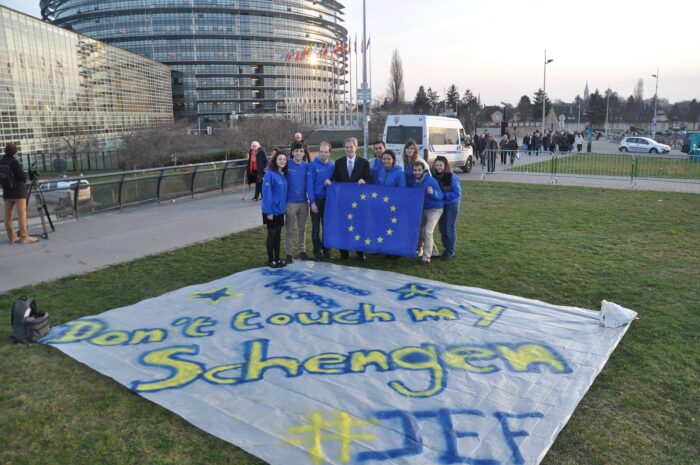 Don't touch my
Schengen
#JEF